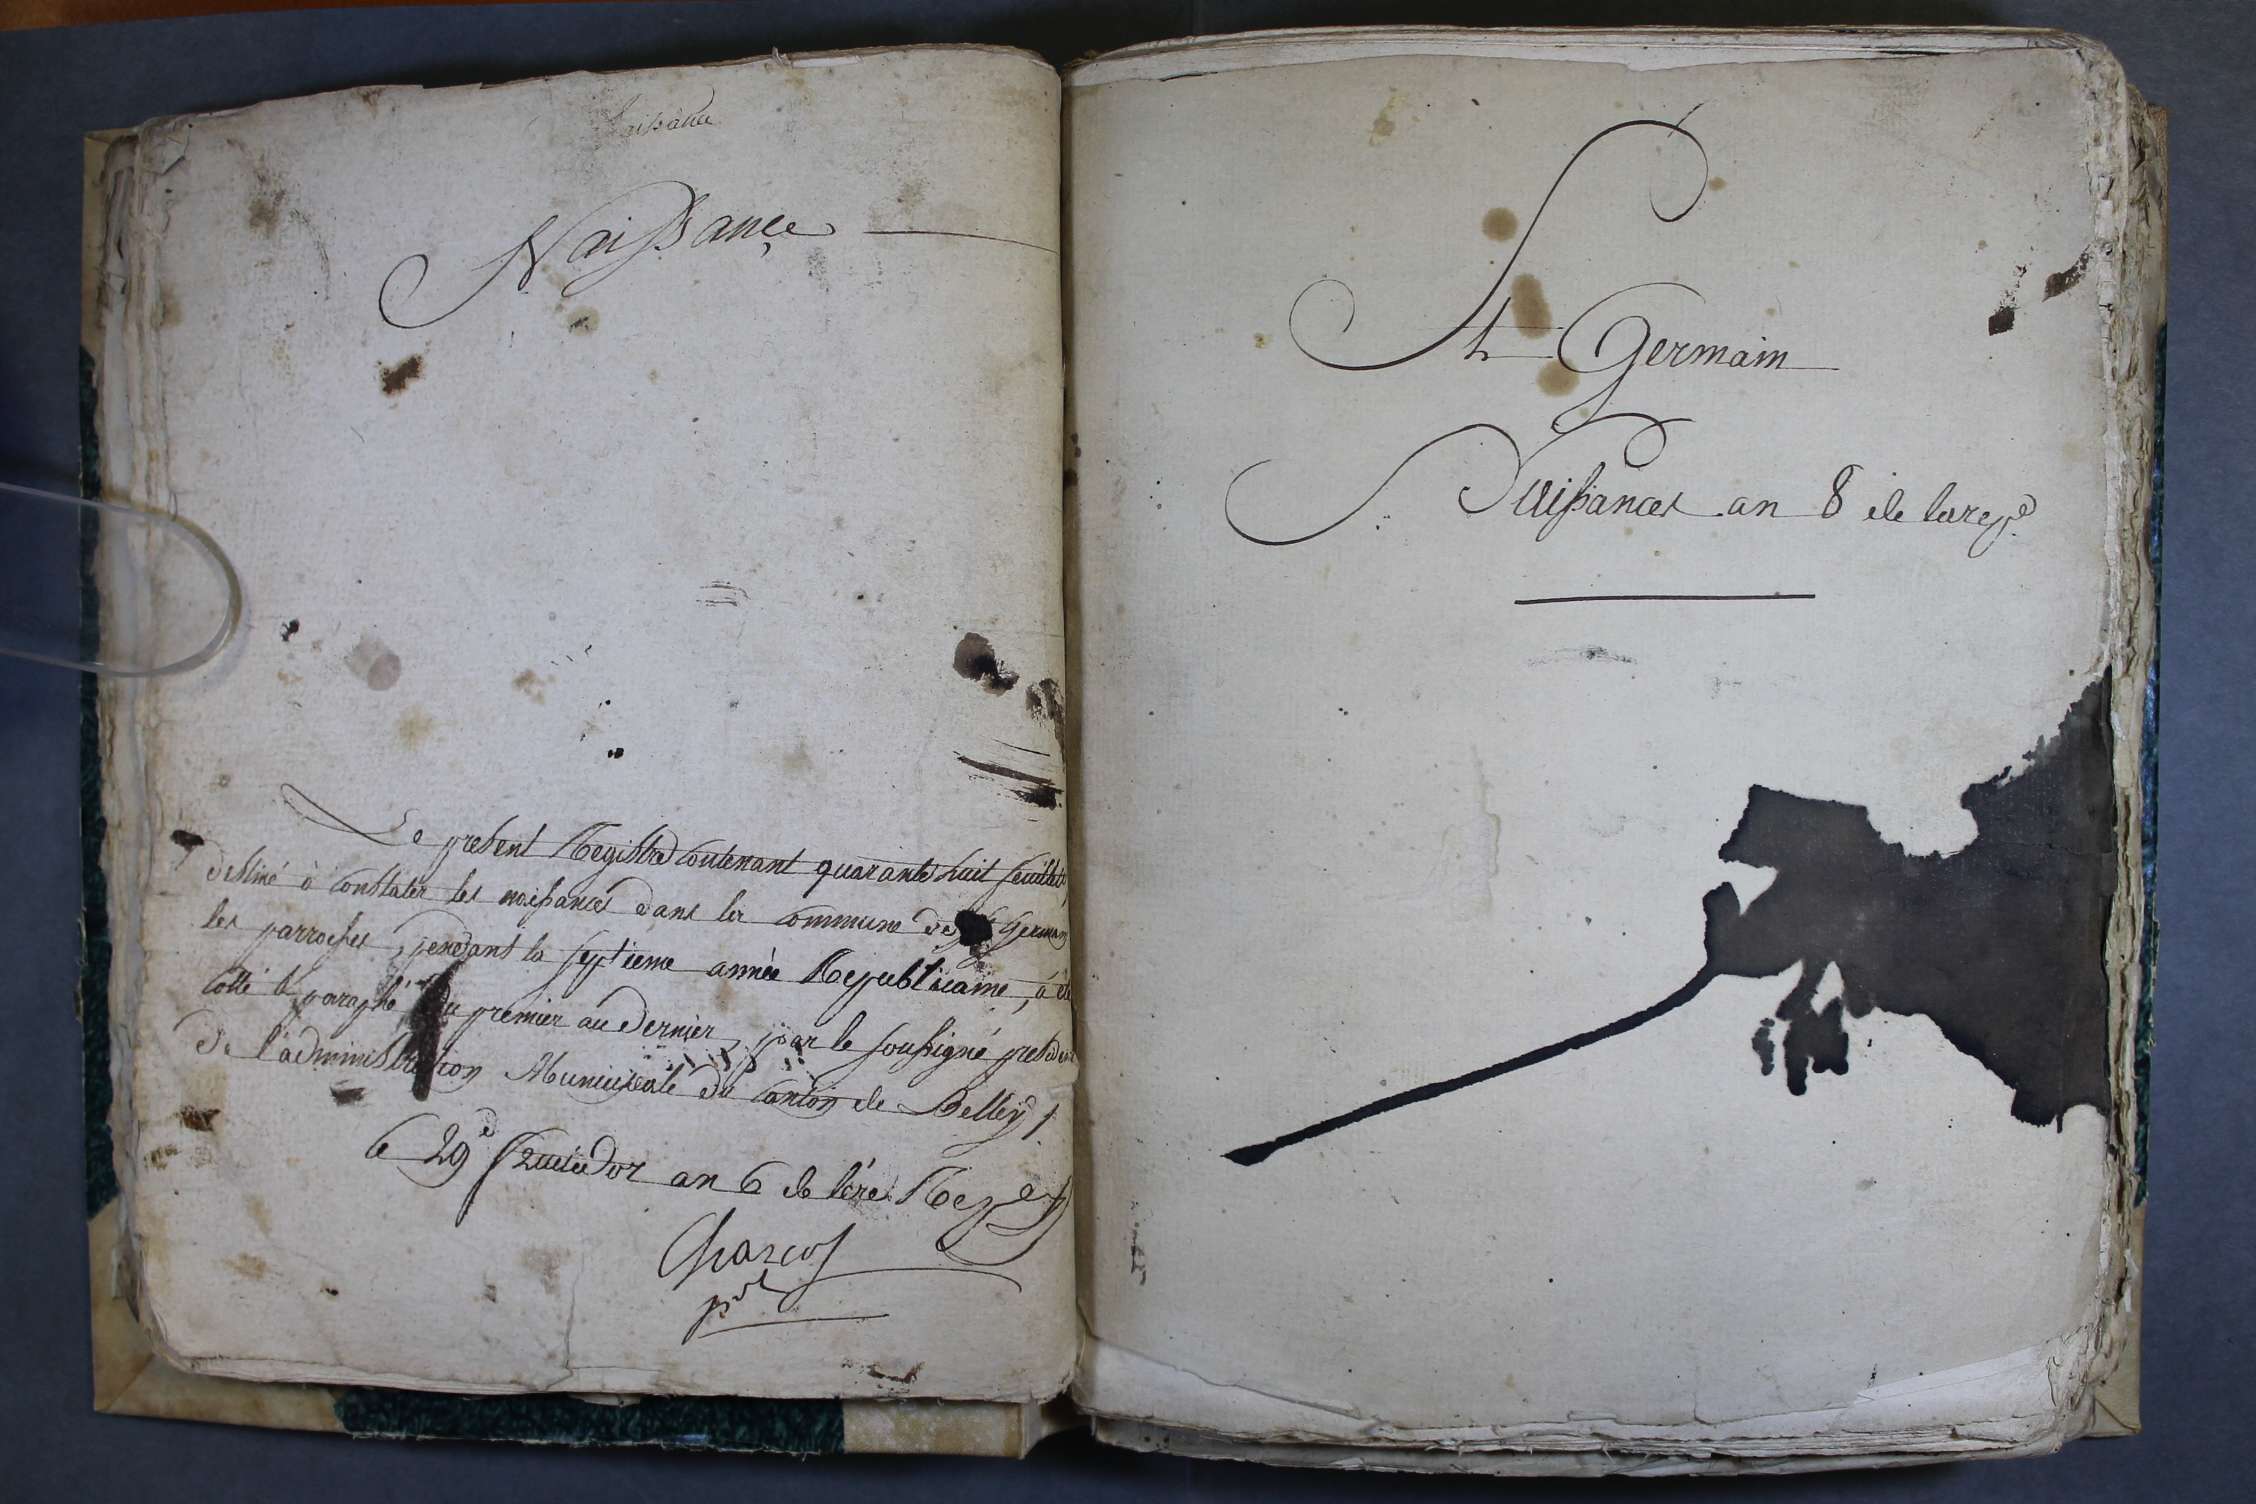 Naissance
Naissance
Le present Registre Contenant quarante huit feuillets
destiné à Constater les naissances dans la commune de St Germain
les parroisses, pendant la septieme année Republicaine, a été
cotté & paraphé du premier au dernier, par le soussigné president
de l'administration Municipale du canton de Belley,
le 29e fructidor an 6 de l'ère Rep.e
Charcot
pdt
St Germain
Naissances an 8 de la rep.e